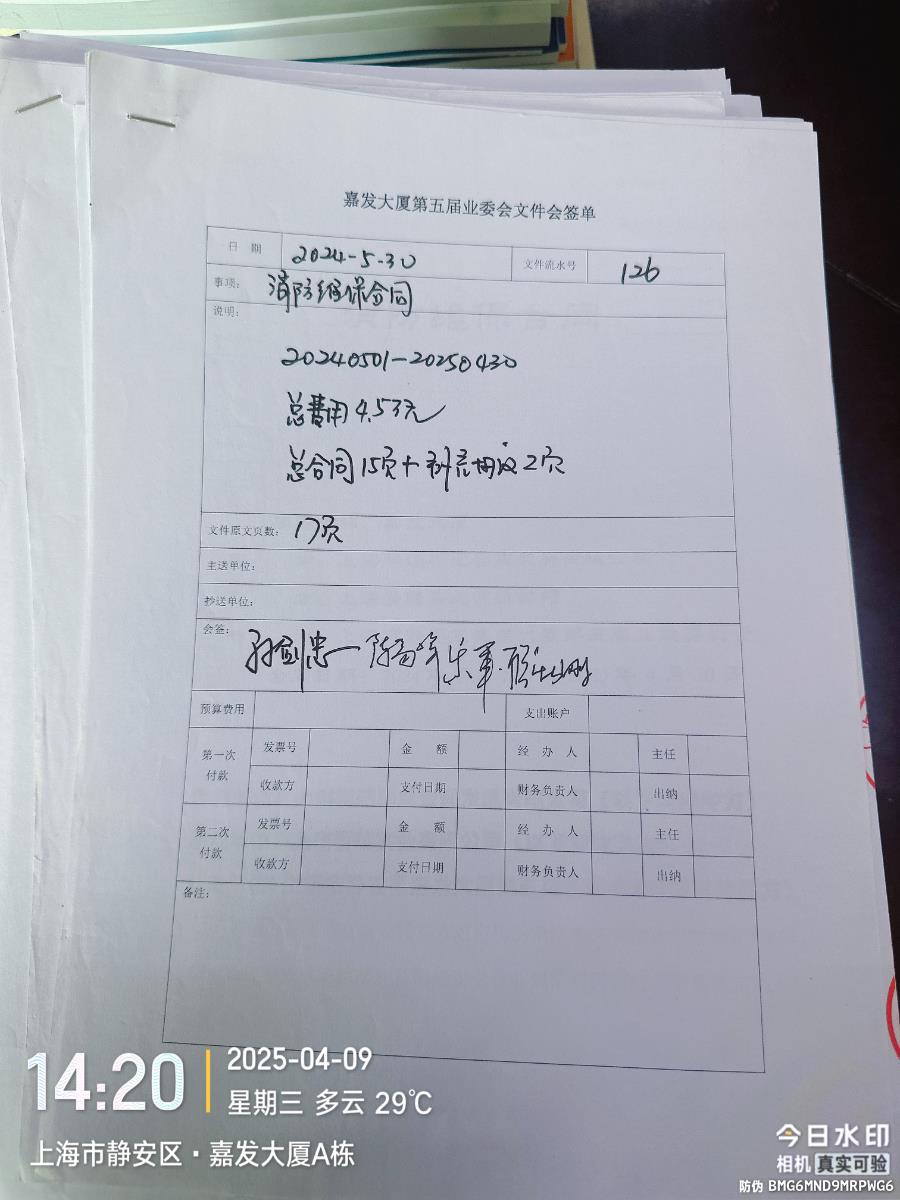 嘉发大厦第五届业委会文件会签单
日 期 2024-5-30 文件流水号 126
事项: 消防维保合同
说明:
20240501-20250430
总费用 4.53元
总合同15页+补充协议2页
文件原文页数: 17页
主送单位:
抄送单位:
会签:
预算费用 支出账户
第一次付款 发票号 金 额 经 办 人 主任
收款方 支付日期 财务负责人 出纳
第二次付款 发票号 金 额 经 办 人 主任
收款方 支付日期 财务负责人 出纳
备注:
14:20 2025-04-09
星期三 多云 29℃
上海市静安区·嘉发大厦A栋
今日水印
相机 真实可验
防伪 BMG6MND9MRPWG6